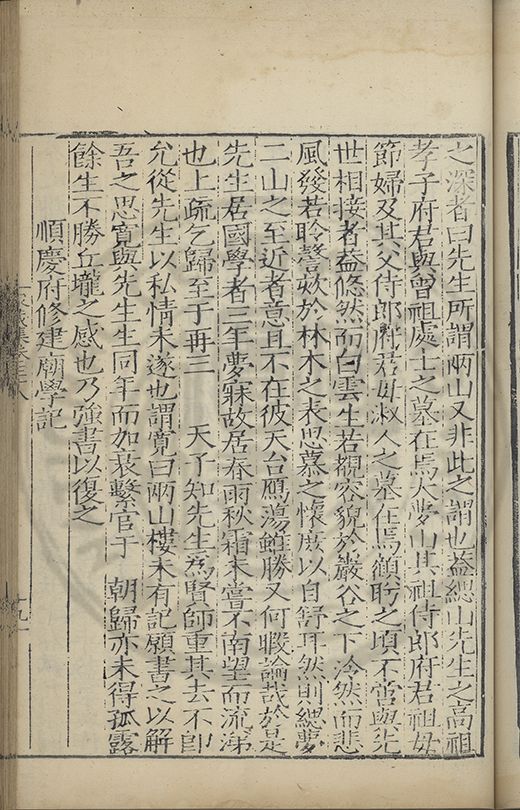 之深者曰先生所謂兩山又非此之謂也蓋緦山先生之高祖
孝子府君與曾祖處士之墓在焉大夢山其祖侍郎府君祖母
節婦及其父侍郎府君母淑人之墓在焉顧盻之頃不啻與先
世相接者益悠然而白雲生若覩容貌於巖谷之下泠然而悲
風發若聆謦欬於林木之表思慕之懷庶以自舒耳然則緦夢
二山之至近者意且不在彼天台鴈蕩雖勝又何暇論哉於是
先生居國學者三年夢寐故居春雨秋霜未嘗不南望而流涕
也上疏乞歸至于再三 天子知先生爲賢師重其去不卽
允從先生以私情未遂也謂寬曰兩山樓未有記願書之以解
吾之思寬與先生生同年而加衰繫官于 朝歸亦未得孤露
餘生不勝丘壠之感也乃強書以復之
順慶府修建廟學記